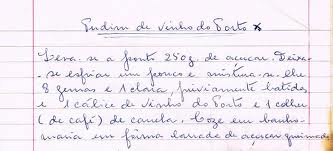 Pudim de vinho do Porto x
Leva-se a ponto 250g. de açucar. Deixa-
-se esfriar um pouco e mistura-se-lhe
8 gemas e 1 clara, préviamente batidas
e 1 cálice de vinho do Porto e 1 colher
(de café) de canela. Coze em banho-
maria em fôrma barrada de açucar queimado